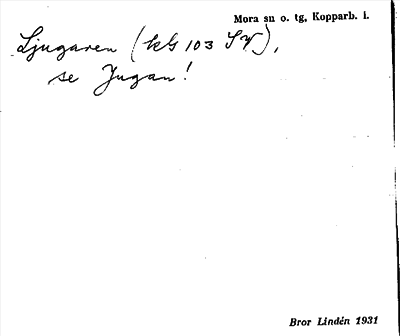 Mora sn o. tg, Kopparb. l.
Ljugaren (kG 103 SV),
se Jugan!
Bror Lindén 1931